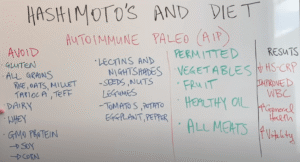 HASHIMOTO'S AND DIET
AUTOIMMUNE PALEO (AIP)
AVOID
· GLUTEN
· ALL GRAINS
RYE, OATS, MILLET
TAPIOCA, TEFF
· DAIRY
· WHEY
· GMO PROTEIN
→ SOY
→ CORN
· LECTINS AND
NIGHTSHADES
- SEEDS, NUTS
LEGUMES
- TOMATOES, POTATO
EGGPLANT, PEPPER
PERMITTED
VEGETABLES
· FRUIT
· HEALTHY OIL
· ALL MEATS
RESULTS
HS-CRP
IMPROVED
WBC
General
Health
Vitality